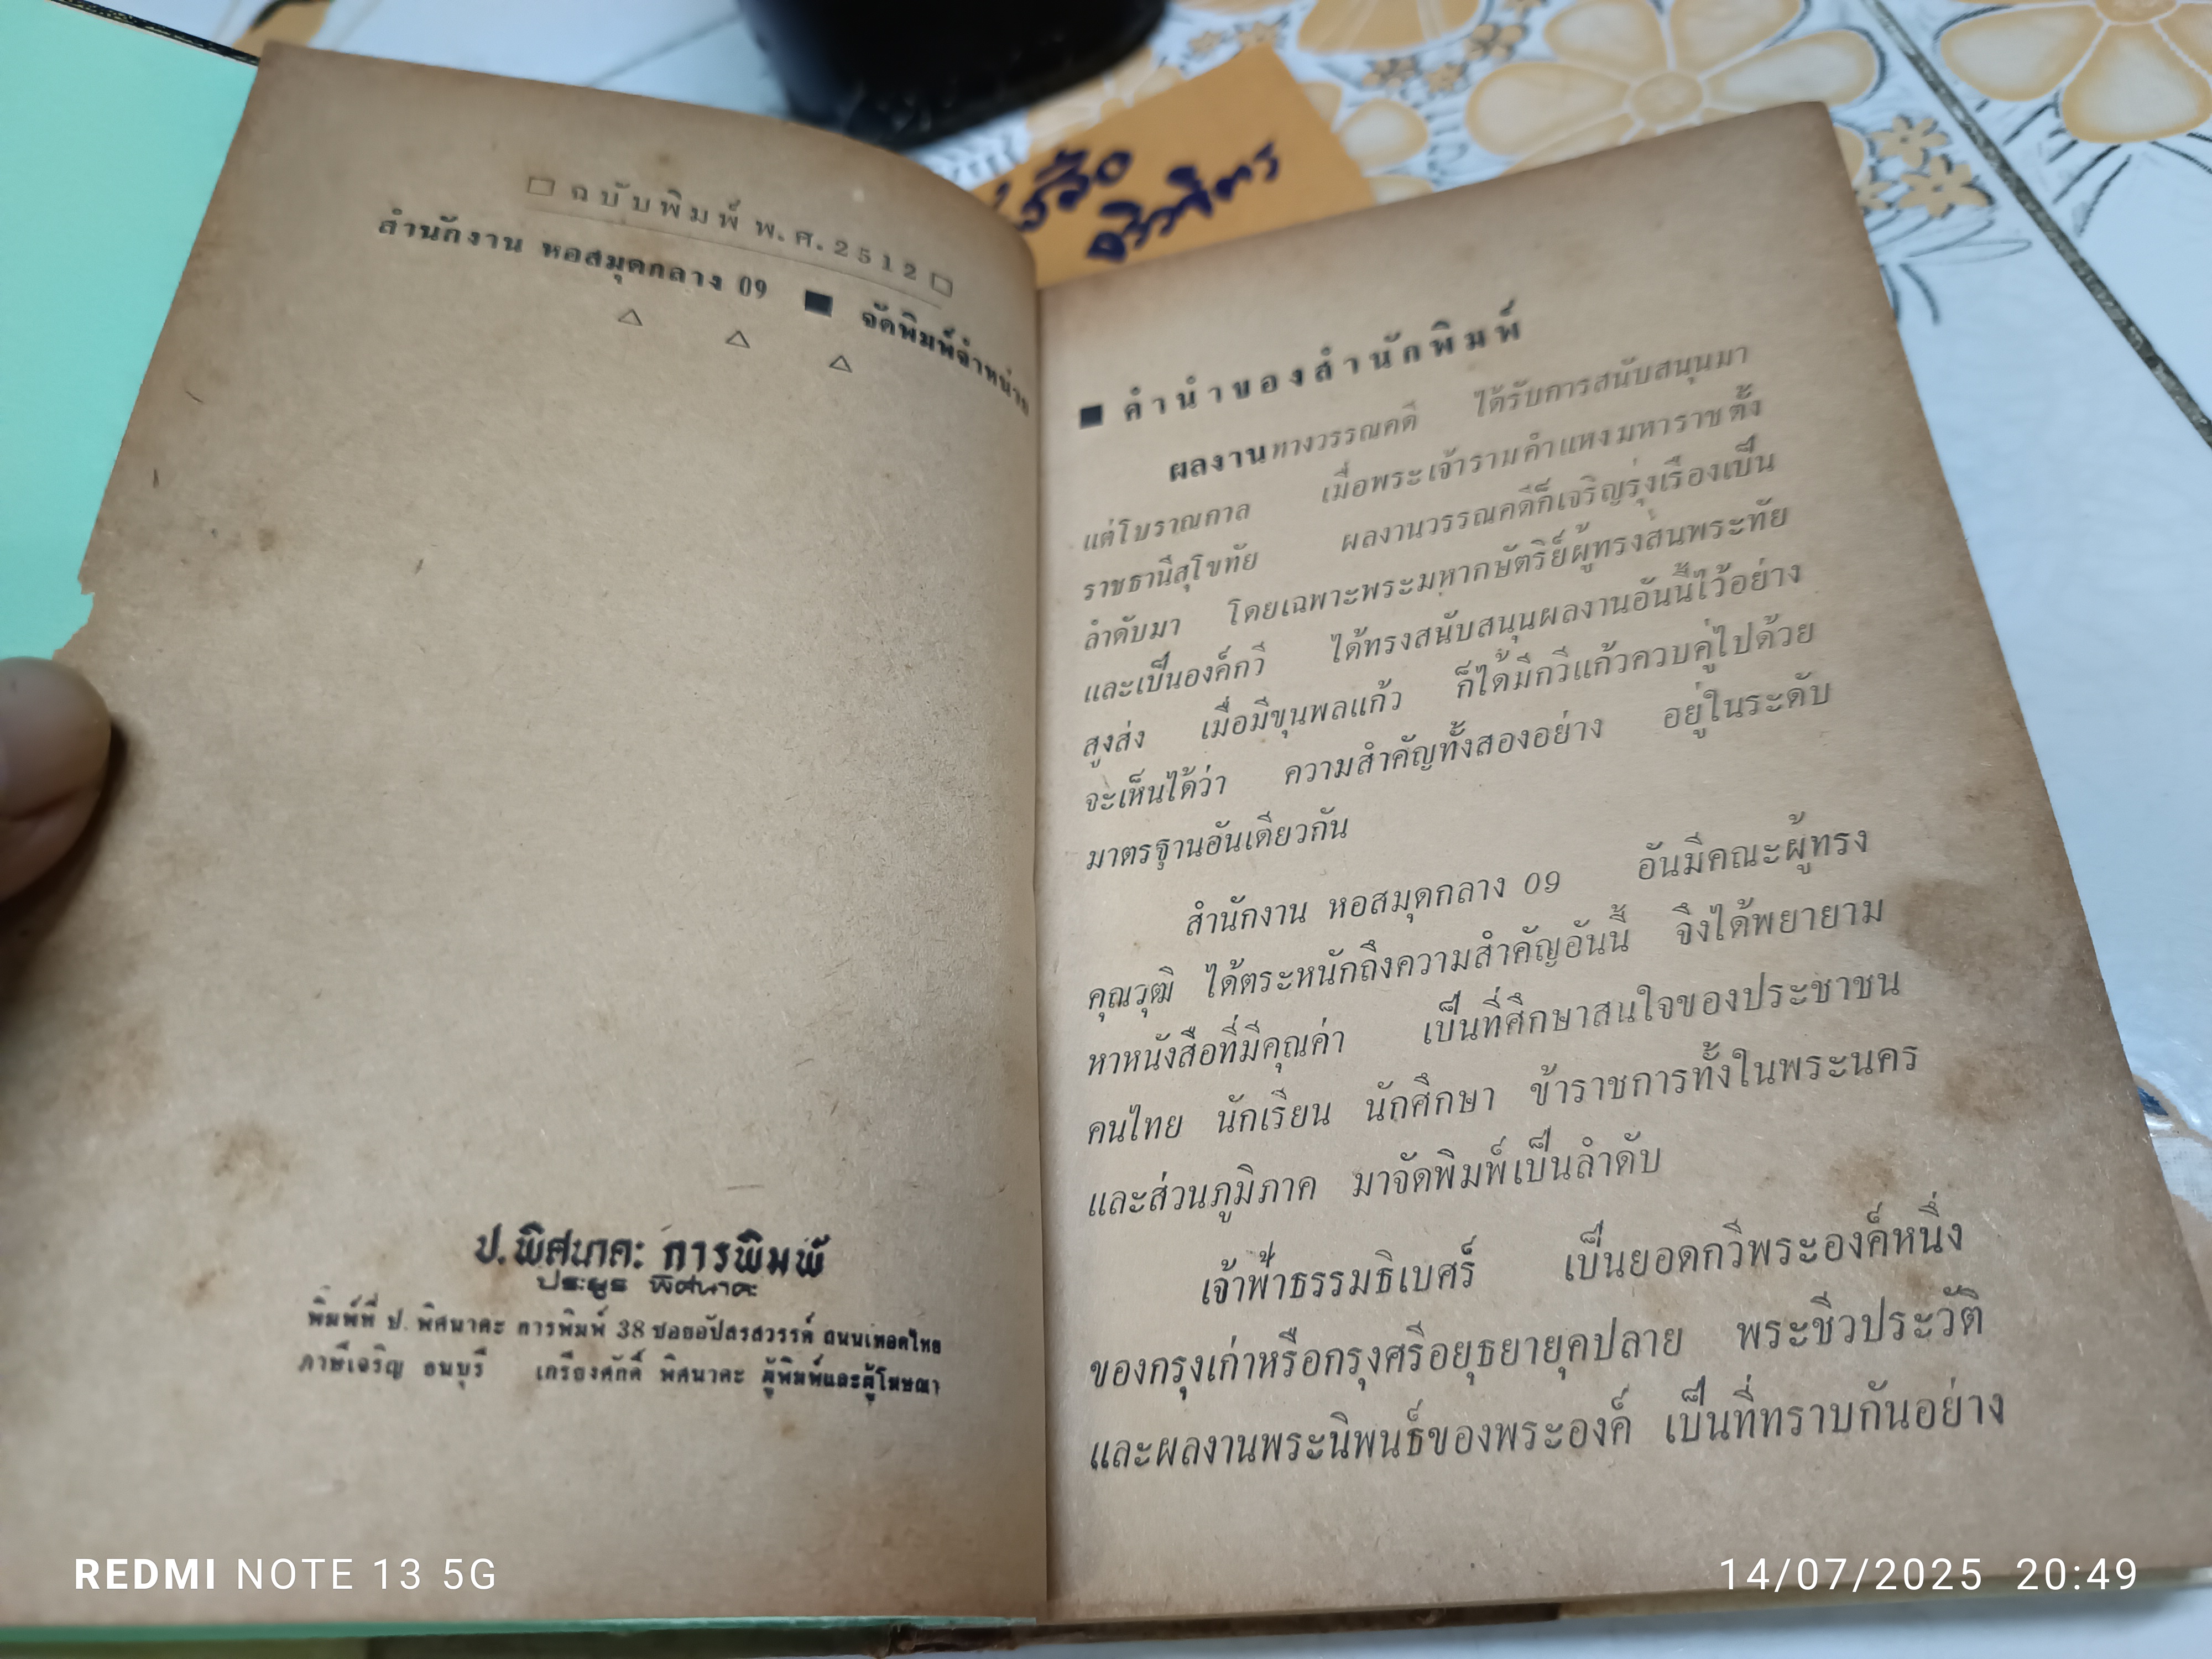 □ ฉบับพิมพ์ พ.ศ.2512 □
สำนักงาน หอสมุดกลาง 09 ■ จัดพิมพ์จำหน่าย
△ △ △
ป.พิศนาคะ การพิมพ์
ประยูร พิศนาคะ
พิมพ์ที่ ป. พิศนาคะ การพิมพ์ 38 ซอยอัปสรสวรรค์ ถนนเทอดไทย
ภาษีเจริญ ธนบุรี เกรียงศักดิ์ พิศนาคะ ผู้พิมพ์และผู้โฆษณา
■ คำนำของสำนักพิมพ์
ผลงานทางวรรณคดี ได้รับการสนับสนุนมา
แต่โบราณกาล เมื่อพระเจ้ารามคำแหงมหาราชตั้ง
ราชธานีสุโขทัย ผลงานวรรณคดีก็เจริญรุ่งเรืองเป็น
ลำดับมา โดยเฉพาะพระมหากษัตริย์ผู้ทรงสนพระทัย
และเป็นองค์กวี ได้ทรงสนับสนุนผลงานอันนี้ไว้อย่าง
สูงส่ง เมื่อมีขุนพลแก้ว ก็ได้มีกวีแก้วควบคู่ไปด้วย
จะเห็นได้ว่า ความสำคัญทั้งสองอย่าง อยู่ในระดับ
มาตรฐานอันเดียวกัน
สำนักงาน หอสมุดกลาง 09 อันมีคณะผู้ทรง
คุณวุฒิ ได้ตระหนักถึงความสำคัญอันนี้ จึงได้พยายาม
หาหนังสือที่มีคุณค่า เป็นที่ศึกษาสนใจของประชาชน
คนไทย นักเรียน นักศึกษา ข้าราชการทั้งในพระนคร
และส่วนภูมิภาค มาจัดพิมพ์เป็นลำดับ
เจ้าฟ้าธรรมธิเบศร์ เป็นยอดกวีพระองค์หนึ่ง
ของกรุงเก่าหรือกรุงศรีอยุธยายุคปลาย พระชีวประวัติ
และผลงานพระนิพนธ์ของพระองค์ เป็นที่ทราบกันอย่าง
REDMI NOTE 13 5G
14/07/2025 20:49